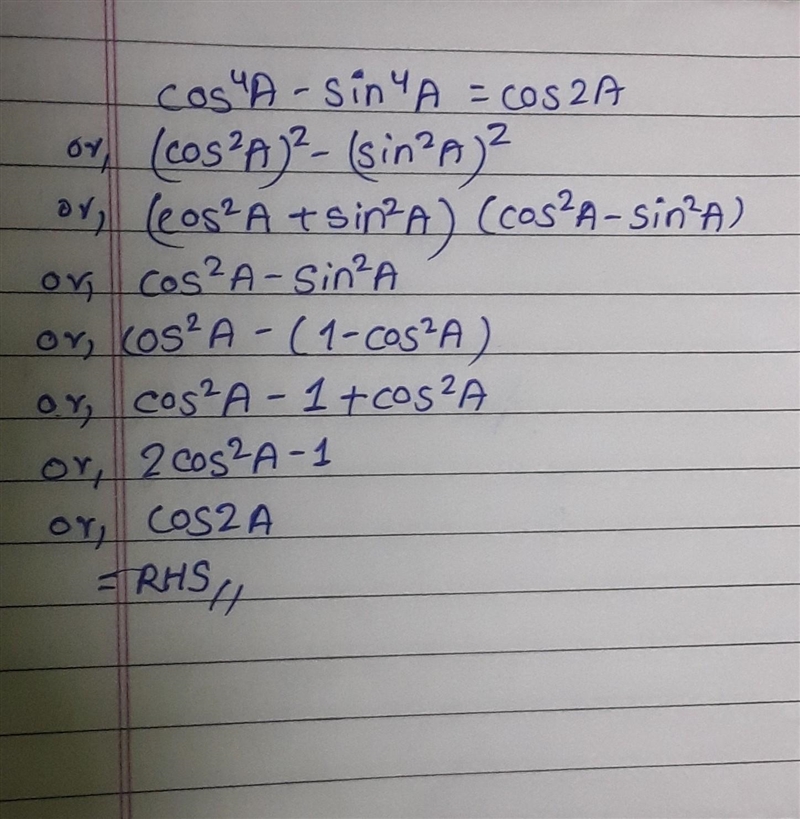 cos⁴A - sin⁴A = cos2A
or, (cos²A)² - (sin²A)²
or, (cos²A + sin²A) (cos²A - sin²A)
or, cos²A - sin²A
or, cos²A - (1 - cos²A)
or, cos²A - 1 + cos²A
or, 2cos²A - 1
or, cos2A
= RHS //